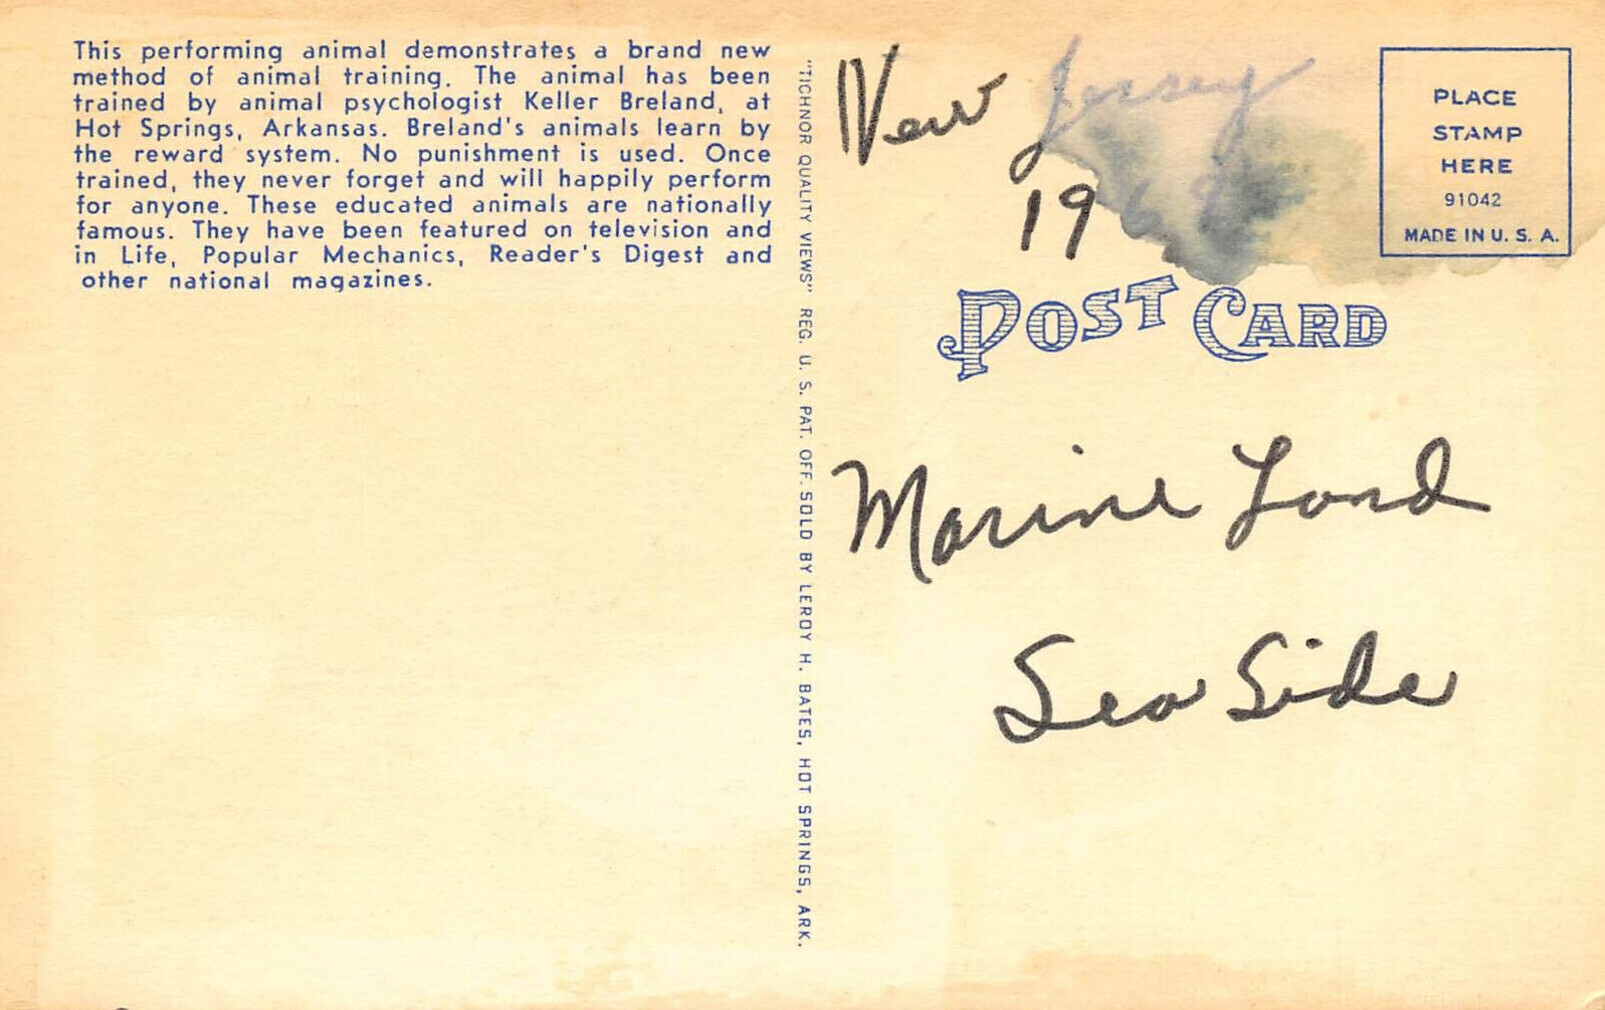 This performing animal demonstrates a brand new
method of animal training. The animal has been
trained by animal psychologist Keller Breland, at
Hot Springs, Arkansas. Breland's animals learn by
the reward system. No punishment is used. Once
trained, they never forget and will happily perform
for anyone. These educated animals are nationally
famous. They have been featured on television and
in Life, Popular Mechanics, Reader's Digest and
other national magazines.
"TICHNOR QUALITY VIEWS" REG. U. S. PAT. OFF. SOLD BY LEROY H. BATES, HOT SPRINGS, ARK.
New Jersey
PLACE
STAMP
HERE
91042
MADE IN U. S. A.
POST CARD
Marine Land
Sea Side